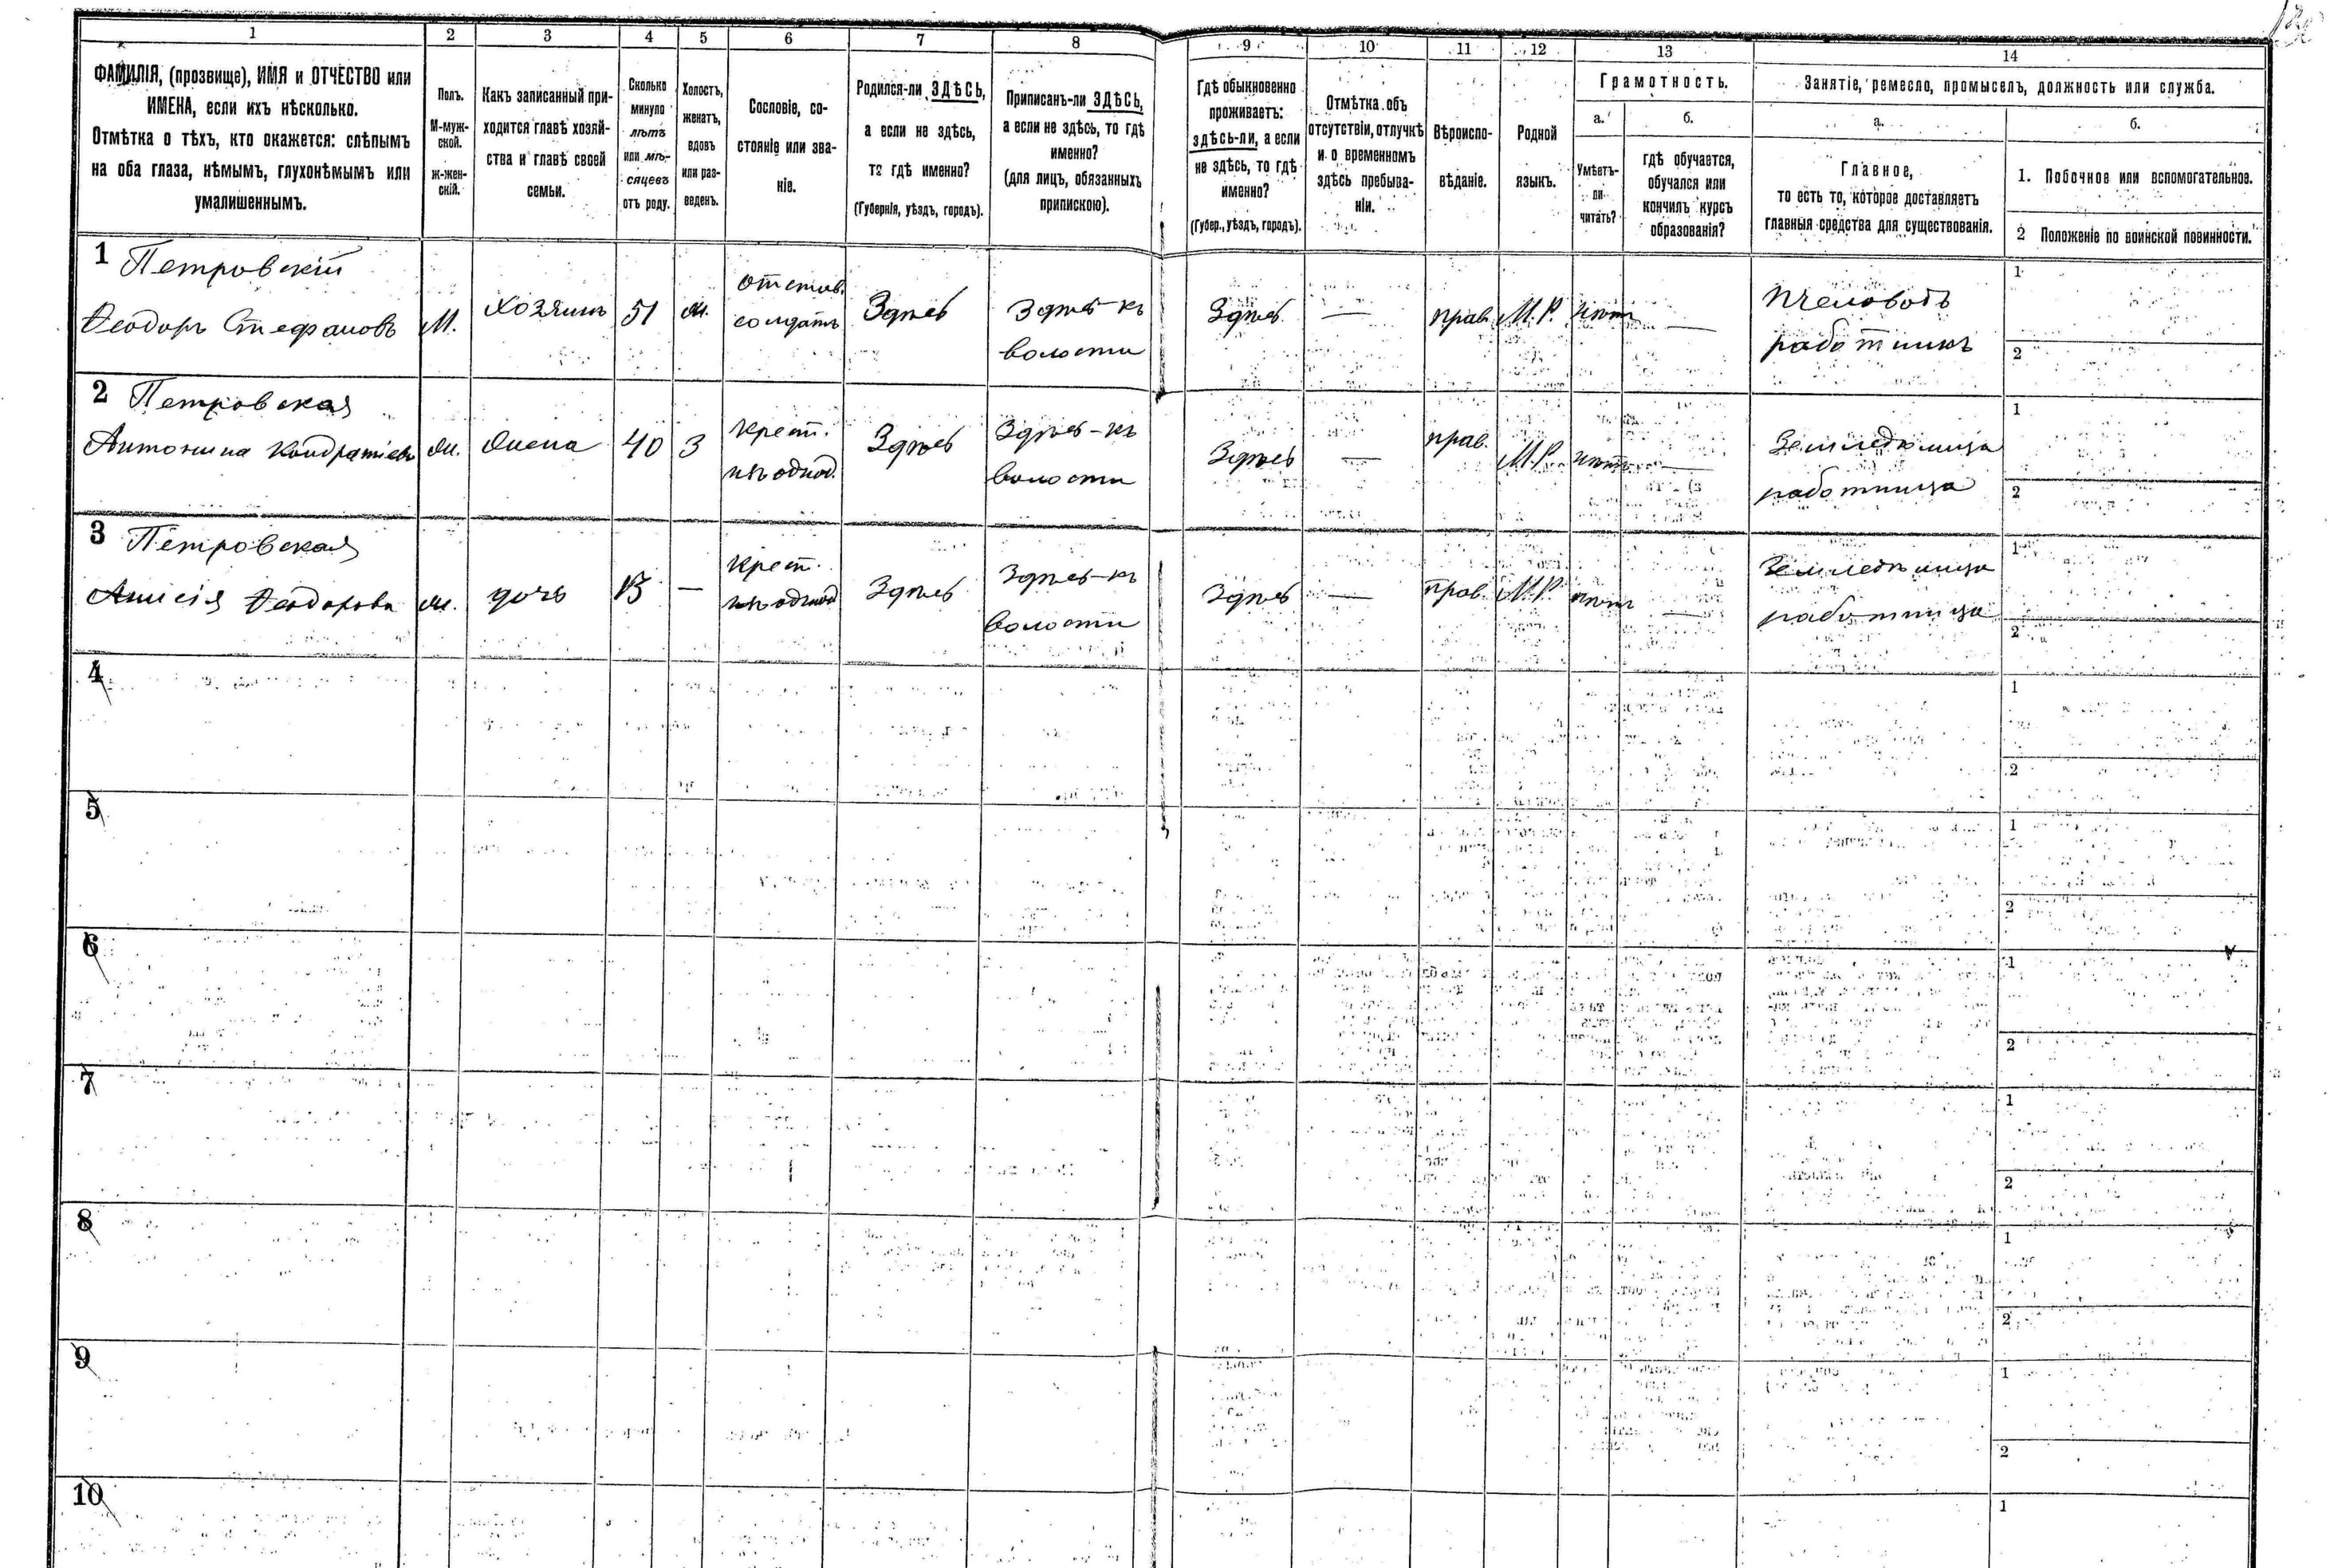 1 2 3 4 5 6 7 8 9 10 11 12 13 14
ФАМИЛІЯ, (прозвище), ИМЯ и ОТЧЕСТВО или
ИМЕНА, если ихъ нѣсколько.
Отмѣтка о тѣхъ, кто окажется: слѣпымъ
на оба глаза, нѣмымъ, глухонѣмымъ или
умалишеннымъ.
Полъ.
М-муж-
ской.
ж-жен-
скій.
Какъ записанный при-
ходится главѣ хозяй-
ства и главѣ своей
семьи.
Сколько
минуло
лѣтъ
или мѣ-
сяцевъ
отъ роду.
Холостъ,
женатъ,
вдовъ
или раз-
веденъ.
Сословіе, со-
стояніе или зва-
ніе.
Родился-ли ЗДѢСЬ,
а если не здѣсь,
то гдѣ именно?
(Губернія, уѣздъ, городъ).
Приписанъ-ли ЗДѢСЬ,
а если не здѣсь, то гдѣ
именно?
(для лицъ, обязанныхъ
припискою).
Гдѣ обыкновенно
проживаетъ:
здѣсь-ли, а если
не здѣсь, то гдѣ
именно?
(Губер., уѣздъ, городъ).
Отмѣтка объ
отсутствіи, отлучкѣ
и о временномъ
здѣсь пребыва-
ніи.
Вѣроиспо-
вѣданіе.
Родной
языкъ.
Грамотность.
а.
Умѣетъ-
ли
читать?
б.
гдѣ обучается,
обучался или
кончилъ курсъ
образованія?
Занятіе, ремесло, промыселъ, должность или служба.
а.
Главное,
то есть то, которое доставляетъ
главныя средства для существованія.
б.
1. Побочное или вспомогательное.
2 Положеніе по воинской повинности.
1 Петровскій
Ѳеодоръ Стефановъ
М.
хозяинъ
51
ж.
отстав.
солдатъ
Здѣсь
Здѣсь-къ
волости
Здѣсь
—
прав.
М.Р.
нѣтъ
—
Пчеловодъ
работникъ
1
2
2 Петровская
Антонина Кондратіева
ж.
жена
40
З
крест.
Здѣсь
Здѣсь-къ
волости
Здѣсь
—
прав.
М.Р.
нѣтъ
—
работница
1
2
3 Петровская
Ѳеодорова
ж.
дочь
13
—
крест.
Здѣсь
Здѣсь-къ
волости
Здѣсь
—
прав.
М.Р.
нѣтъ
—
работница
1
2
4
1
2
5
1
2
6
1
2
7
1
2
8
1
2
9
1
2
10
1